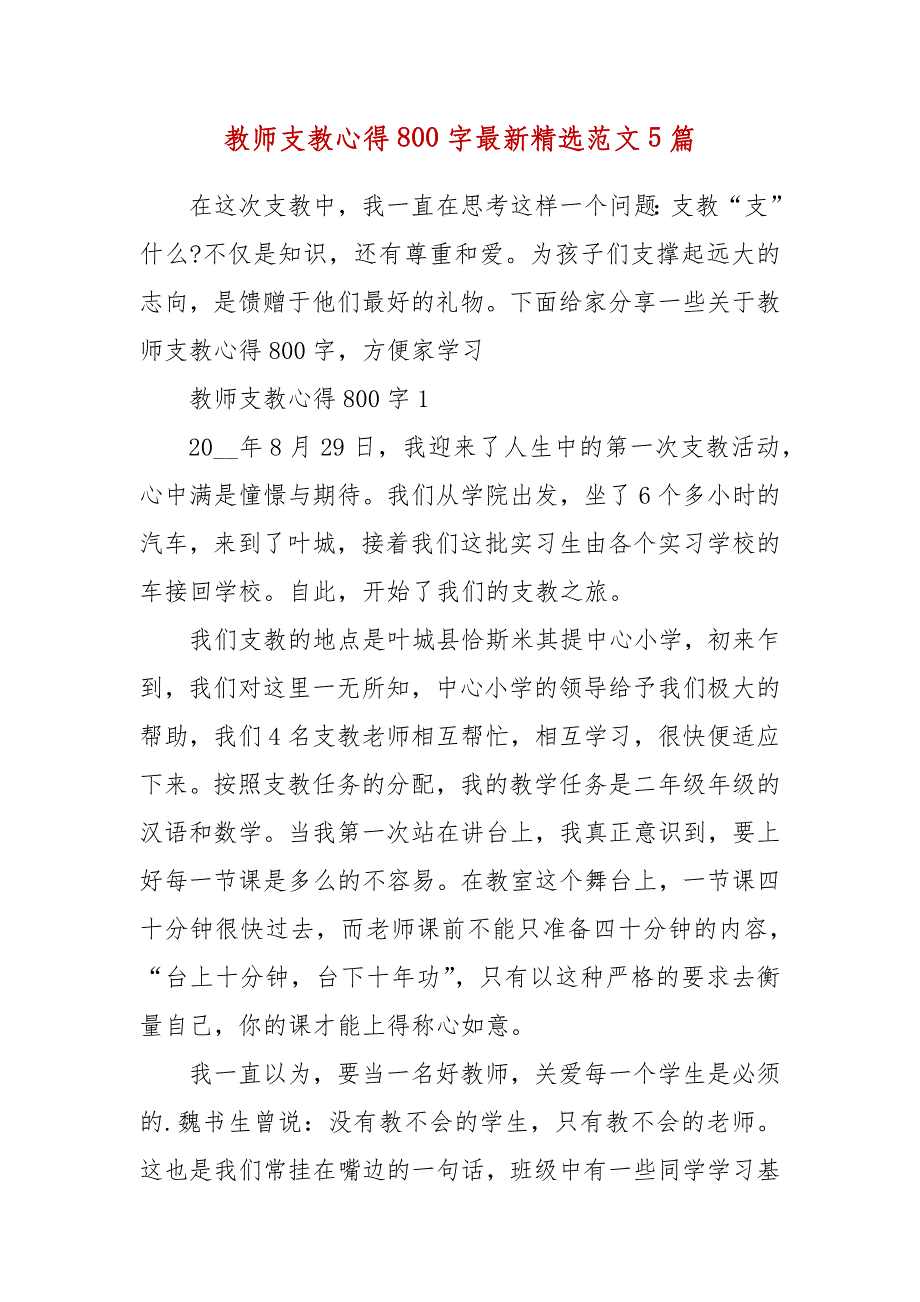 教师支教心得800字最新精选范文5篇
在这次支教中，我一直在思考这样一个问题：支教“支”
什么?不仅是知识，还有尊重和爱。为孩子们支撑起远大的
志向，是馈赠于他们最好的礼物。下面给家分享一些关于教
师支教心得800字，方便家学习
教师支教心得800字1
20__年8月29日，我迎来了人生中的第一次支教活动，
心中满是憧憬与期待。我们从学院出发，坐了6个多小时的
汽车，来到了叶城，接着我们这批实习生由各个实习学校的
车接回学校。自此，开始了我们的支教之旅。
我们支教的地点是叶城县恰斯米其提中心小学，初来乍
到，我们对这里一无所知，中心小学的领导给予我们极大的
帮助，我们4名支教老师相互帮忙，相互学习，很快便适应
下来。按照支教任务的分配，我的教学任务是二年级年级的
汉语和数学。当我第一次站在讲台上，我真正意识到，要上
好每一节课是多么的不容易。在教室这个舞台上，一节课四
十分钟很快过去，而老师课前不能只准备四十分钟的内容，
“台上十分钟，台下十年功”，只有以这种严格的要求去衡
量自己，你的课才能上得称心如意。
我一直以为，要当一名好教师，关爱每一个学生是必须
的.魏书生曾说：没有教不会的学生，只有教不会的老师。
这也是我们常挂在嘴边的一句话，班级中有一些同学学习基